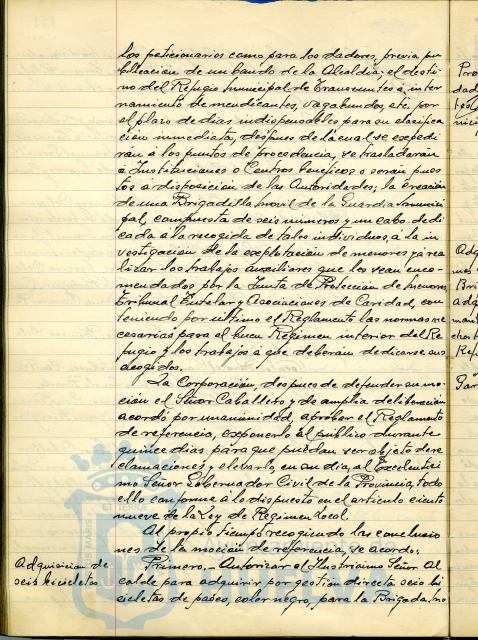 los peticionarios como para los dadores, previa pu
blicación de un bando de la Alcaldía; el desti
no del Refugio municipal de Transeuntes á inter
namiento de mendicantes, vagabundos, etc. por
el plazo de dias indispensables para su clasifica
ción inmediata, despues de la cual se expedi
rán á los puntos de procedencia, se trasladarán
á Instituciones o Centros beneficos o serán pues
tos á disposición de las Autoridades; la creación
de una Brigadilla movil de la Guardia munici
pal, compuesta de seis numeros y un cabo dedi
cada á la recogida de tales individuos, á la in
vestigación de la explotación de menores y á rea
lizar los trabajos auxiliares que les sean enco-
mendados por la Junta de Protección de menores,
Tribunal Tutelar y Asociaciones de Caridad, con
teniendo por ultimo el Reglamento las normas ne
cesarias para el buen Regimen interior del Re
fugio y los trabajos á que deberán dedicarse sus
acogidos.
La Corporación, despues de defender su mo
ción el Señor Caballero y de amplia deliberación
acordó por unanimidad, aprobar el Reglamento
de referencia, exponerlo al público durante
quince dias para que puedan ser objeto de re
clamaciones, y elevarlo, en su dia, al Excelentisi
mo Señor Gobernador Civil de la Provincia, todo
ello conforme á lo dispuesto en el articulo ciento
nueve de la Ley de Regimen Local.
Al propio tiempo recogiendo las conclusio
nes de la moción de referencia, se acordó:
Adquisicion de
seis bicicletas
Primero.- Autorizar al Ilustrisimo Señor Al
calde para adquirir por gestión directa seis bi
cicletas de paseo, color negro, para la Brigada mo